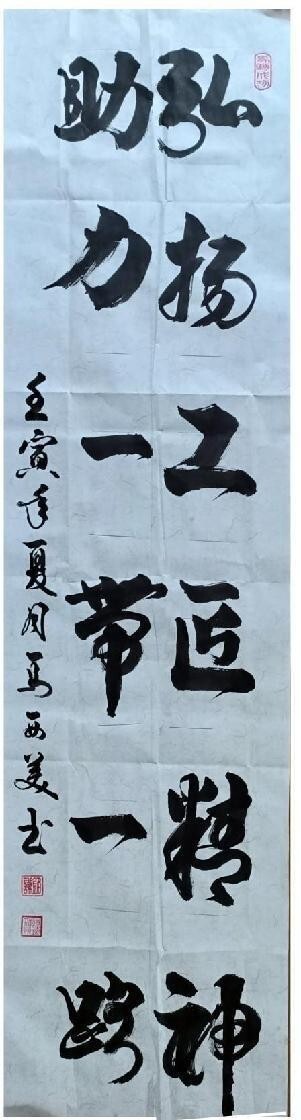 弘扬工匠精神
助力一带一路
壬寅年夏月马西美书